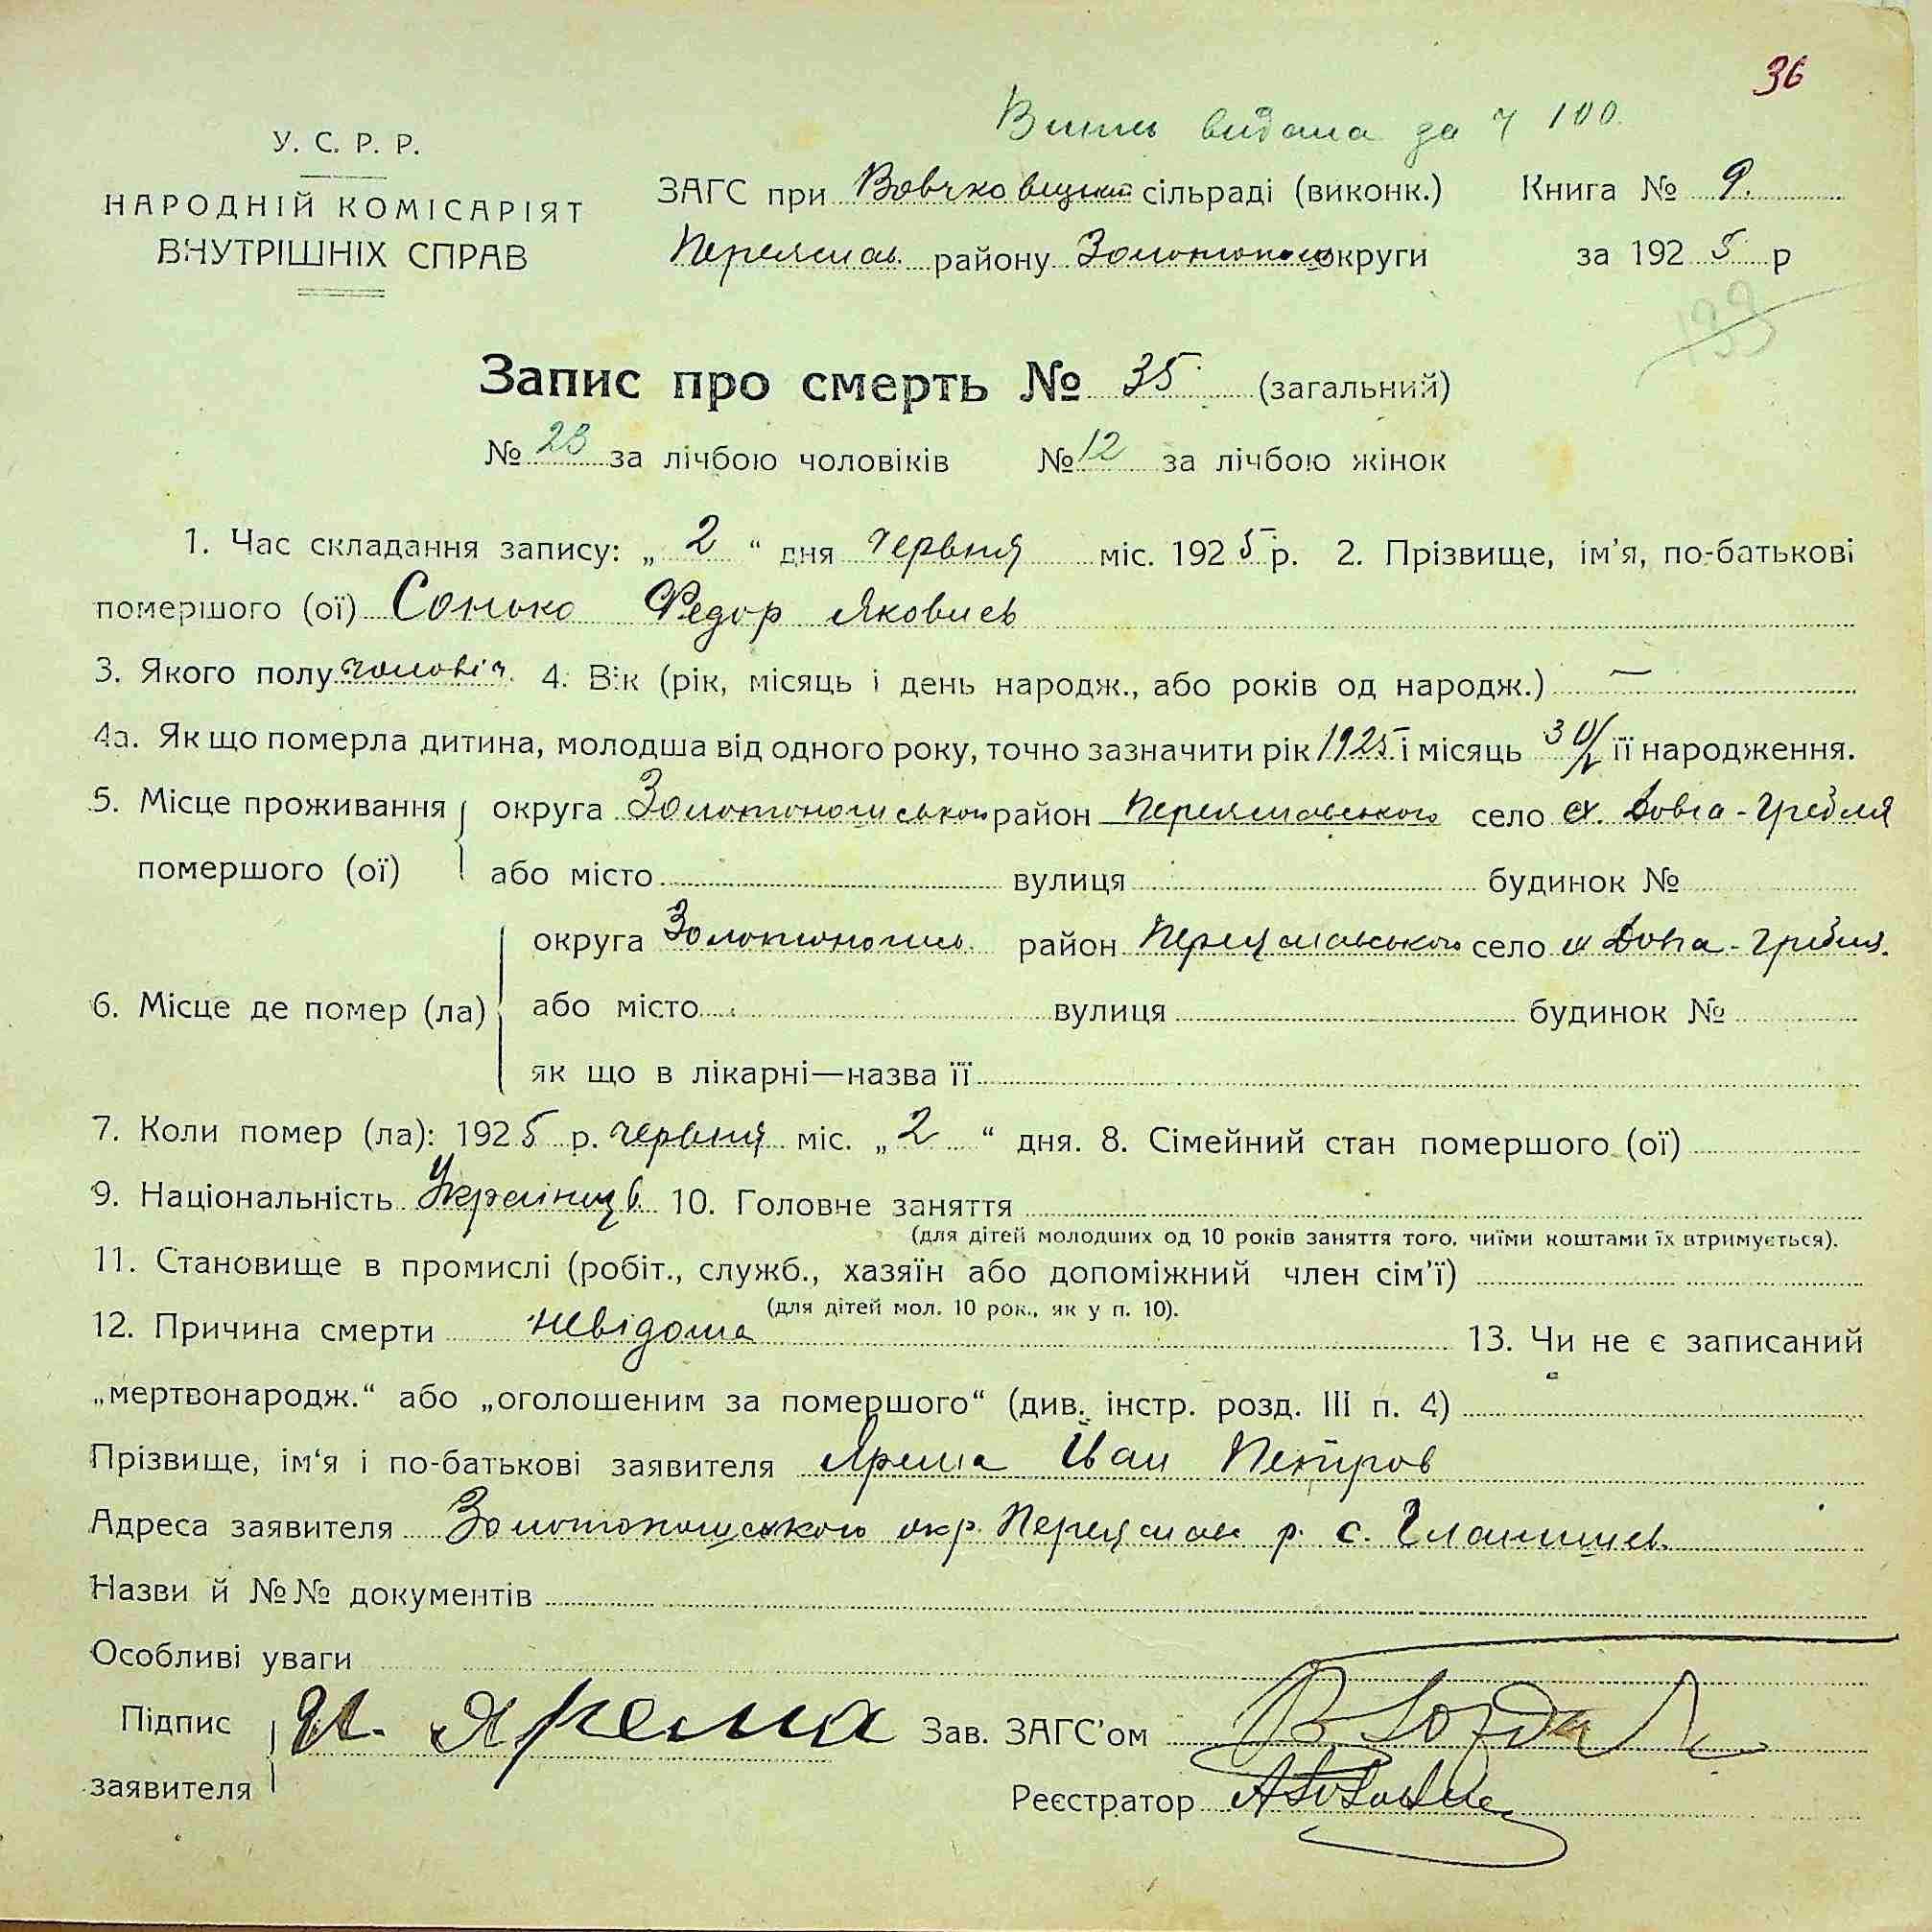 36
видана за ч 100.
У. С. Р. Р.
НАРОДНІЙ КОМІСАРІЯТ
ВНУТРІШНІХ СПРАВ
ЗАГС при сільраді (виконк.) Книга № 9.
Переяслав. району Золотонош округи за 192 5 р
133
Запис про смерть № 35 (загальний)
№ 23 за лічбою чоловіків № 12 за лічбою жінок
1. Час складання запису: „ 2 “ дня червня міс. 192 5 р. 2. Прізвище, ім'я, по-батькові
помершого (ої) Сонько Федор Яковись
3. Якого полу чоловіч. 4. Вік (рік, місяць і день народж., або років од народж.) —
4а. Як що померла дитина, молодша від одного року, точно зазначити рік 1925 і місяць 30/V її народження.
5. Місце проживання округа Золотоношської район Переяславського село х. Довга-Гребля
помершого (ої) або місто вулиця будинок №
округа Золотонош. район Переяславського село х Довга-Гребля.
6. Місце де помер (ла) або місто вулиця будинок №
як що в лікарні—назва її
7. Коли помер (ла): 192 5 р. червня міс. „ 2 “ дня. 8. Сімейний стан помершого (ої)
9. Національність Українців 10. Головне заняття
(для дітей молодших од 10 років заняття того, чиїми коштами їх втримується).
11. Становище в промислі (робіт., служб., хазяїн або допоміжний член сім'ї)
(для дітей мол. 10 рок., як у п. 10).
12. Причина смерти невідома 13. Чи не є записаний
„мертвонародж.“ або „оголошеним за помершого“ (див. інстр. розд. III п. 4)
Прізвище, ім'я і по-батькові заявителя Ярема Іван Петров
Адреса заявителя Золотоношського окр. Переяслав р. с.
Назви й №№ документів
Особливі уваги
Підпис И. Ярема Зав. ЗАГС'ом
заявителя
Реєстратор